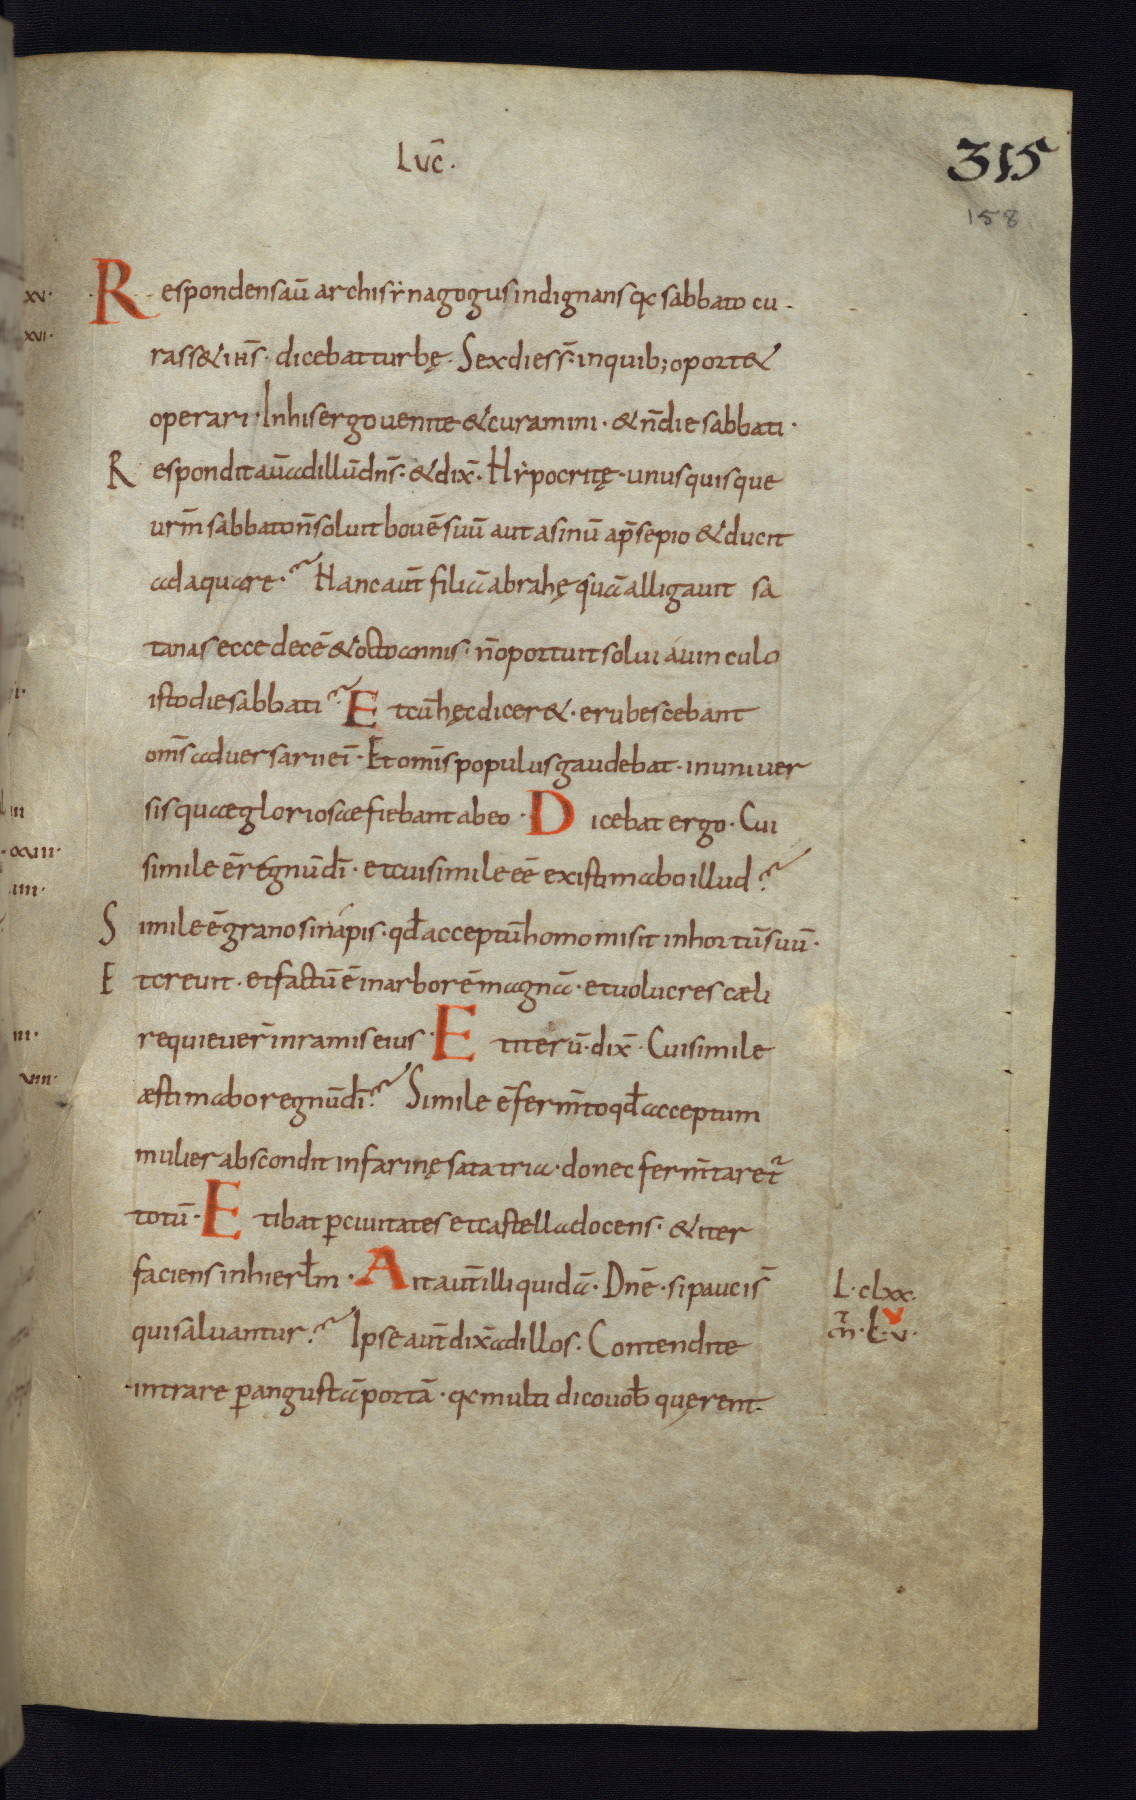 Luc̄.
315
158
xv· Respondens aū archisẏnagogus indignans qc sabbato cu-
xvi· rass& ih̄s· dicebat turbę· Sex dies s̄· in quib; oport&
operari· In his ergo uenite & curamini· & n̄ die sabbati·
Respondit aū ad illū dn̄s· & dix̄· Hẏpocritę· unusquisque
ur̄m sabbato n̄ soluit bouē suū aut asinū a p̄sepio & ducit
adaquare? Hanc aut̄ filiā abrahę quā alligauit sa
tanas ecce decē & octo annis· n̄ oportuit solui a uinculo
isto die sabbati? Et cū hęc dicer&· erubescebant
om̄s aduersarii eī· Et om̄is populus gaudebat· in uniuer
sis quae gloriosae fiebant ab eo· Dicebat ergo· Cui
simile ē regnū dī· et cui simile eē existimabo illud?
Simile ē grano sinapis· qđ acceptū homo misit in hortū suū·
Et creuit· et factū ē in arborē magnā· et uolucres cæli
requieuer̄ in ramis eius· Et iterū· dix̄· Cui simile
æstimabo regnū dī? Simile ē ferm̄to qđ acceptum
mulier abscondit in farinę sata tria· donec ferm̄taret̄
totū· Et ibat ꝑ ciuitates et castella docens· & iter
faciens in hierłm· Ait aut̄ illi quidā· Dn̄e· si pauci s̄
qui saluantur? Ipse aut̄ dix̄ ad illos· Contendite
intrare ꝑ angustā portā· qc multi dico uob̄ quęrent·
xxiii·
iiii·
iii·
viii·
L·clxx·
m̄·L·v·